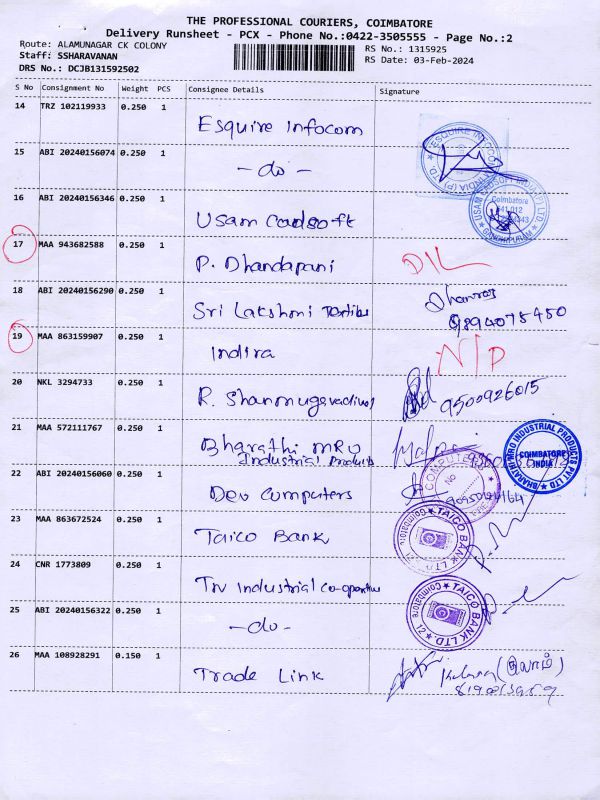 THE PROFESSIONAL COURIERS, COIMBATORE
Delivery Runsheet - PCX - Phone No.:0422-3505555 - Page No.:2
Route: ALAMUNAGAR CK COLONY
RS No.: 1315925
Staff: SSHARAVANAN
RS Date: 03-Feb-2024
DRS No.: DCJB131592502
S No Consignment No Weight PCS Consignee Details Signature
14 TRZ 102119933 0.250 1 Esquire Infocom
15 ABI 20240156074 0.250 1 -do-
16 ABI 20240156346 0.250 1 Usam Cadsoft
17 MAA 943682588 0.250 1 P. Dhandapani DIL
18 ABI 20240156290 0.250 1 Sri Lakshmi Textiles Dhanraj
9894075450
19 MAA 863159907 0.250 1 Indira N/P
20 NKL 3294733 0.250 1 R. Shanmugavadivel 9500926015
21 MAA 572111767 0.250 1 Bharathi MRO
Industrial Products
BHARATHI MRO INDUSTRIAL PRODUCTS PVT LTD
COIMBATORE
INDIA
22 ABI 20240156060 0.250 1 Dev Computers
COMPUTERS
23 MAA 863672524 0.250 1 Taico Bank
TAICO BANK LTD
Coimbatore 12
24 CNR 1773809 0.250 1 TN Industrial Co-operative
25 ABI 20240156322 0.250 1 -do-
TAICO BANK LTD.
Coimbatore 12
26 MAA 108928291 0.150 1 Trade Link